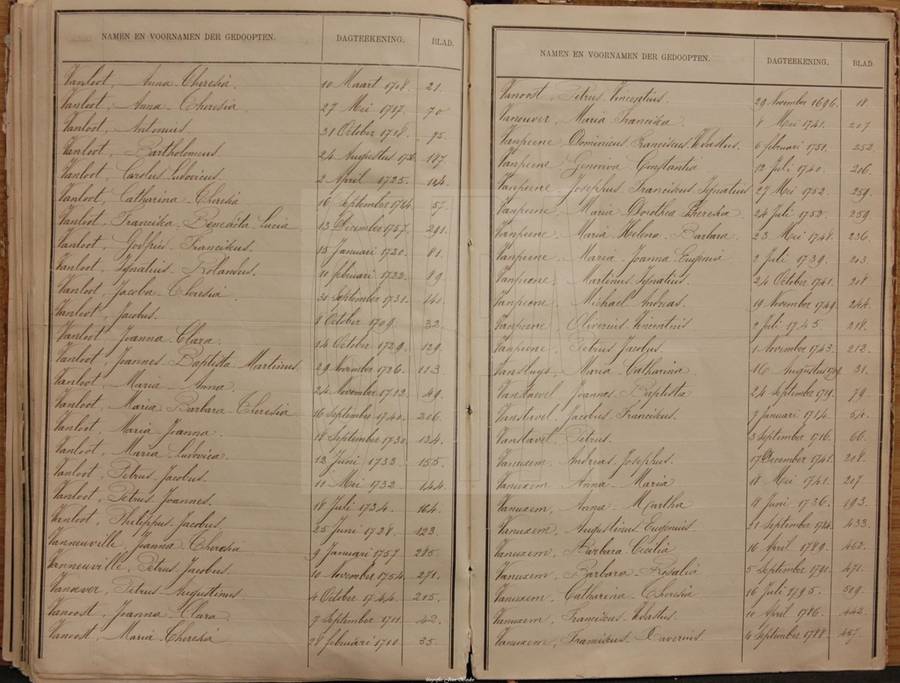 NAMEN EN VOORNAMEN DER GEDOOPTEN. DAGTEEKENING. BLAD.
Vanloot, Anna Theresia 10 Maart 1718. 21.
Vanloot, Anna Theresia 27 Mei 1717. 70
Vanloot, Antonius 31 October 1718. 75.
Vanloot, Bartholomeus 24 Augustus 187.
Vanloot, Carolus Ludovicus 2 April 1725. 104.
Vanloot, Catharina Theresia 16 September 1764 57.
Vanloot, Franciska Benedicta Lucia 13 December 1757. 291.
Vanloot, Josephus Franciskus 15 Januari 1720. 81.
Vanloot, Ignatius Rolandus. 11 februari 1722. 89.
Vanloot, Jacoba Theresia. 30 September 1731. 141.
Vanloot, Jacobus. 1 October 1709. 32.
Vanloot, Joanna Clara. 14 October 1729. 129.
Vanloot, Joannes Baptista Martinus 29 November 1726. 113
Vanloot, Maria Anna. 24 November 1712. 49.
Vanloot, Maria Barbara Theresia 16 September 1740. 206.
Vanloot, Maria Joanna. 18 September 1730. 134.
Vanloot, Maria Ludovica. 12 Juni 1733. 155.
Vanloot, Petrus Jacobus. 11 Mei 1732 144.
Vanloot, Petrus Joannes. 18 Juli 1734. 164.
Vanloot, Philippus Jacobus. 25 Juni 1728. 123.
Vanneuville, Joanna Theresia 9 Januari 1757. 285.
Vanneuville, Petrus Jacobus. 10 November 1754. 271.
Petrus Augustinus 4 October 1744. 215.
Vanoost, Joanna Clara 7 September 1711. 42.
Vanoost, Maria Theresia 28 februari 1710. 35.
NAMEN EN VOORNAMEN DER GEDOOPTEN. DAGTEEKENING. BLAD.
Vanoost, Petrus Vincentius. 29 November 1696. 18.
Maria Franciska 8 Mei 1741. 207.
Vanpeene, Dominicus Franciscus 6 februari 1751. 252.
Vanpeene, Genoveva Constantia 12 Juli 1740. 206.
Vanpeene, Josephus Franciskus Ignatius 27 Mei 1752. 259.
Vanpeene, Maria Dorothea Theresia 24 Juli 1752. 259.
Vanpeene, Maria Helena Barbara. 23 Mei 1748. 236.
Vanpeene, Maria Joanna Eugenia 2 Juli 1739. 203
Vanpeene, Martinus Ignatius. 24 October 1741. 208
Vanpeene, Michael Andreas. 19 November 1749. 244.
Vanpeene, Oliverius Vincentius 2 Juli 1745. 218.
Vanpeene, Petrus Jacobus. 1 November 1743. 212.
Vansluys, Maria Catharina 16 Augustus 1709 31.
Vanstavel, Joannes Baptista 24 September 1719. 79.
Vanstavel, Jacobus Franciskus. 7 Januari 1714. 54.
Vanstavel, Petrus. 3 September 1716. 66.
Vanuxem, Andreas Josephus. 17 December 1741. 208.
Vanuxem, Anna Maria 18 Mei 1741. 207
Vanuxem, Anna Martha 11 Juni 1736. 193
Vanuxem, Augustinus Eugenius 21 September 433.
Vanuxem, Barbara Cecilia 16 April 1789. 462.
Vanuxem, Barbara Rosalia 5 September 1791. 471.
Vanuxem, Catharina Theresia 16 Juli 1795. 509.
Vanuxem, Franciskus 10 April 1786. 442.
Vanuxem, Franciskus 6 September 1788. 457.